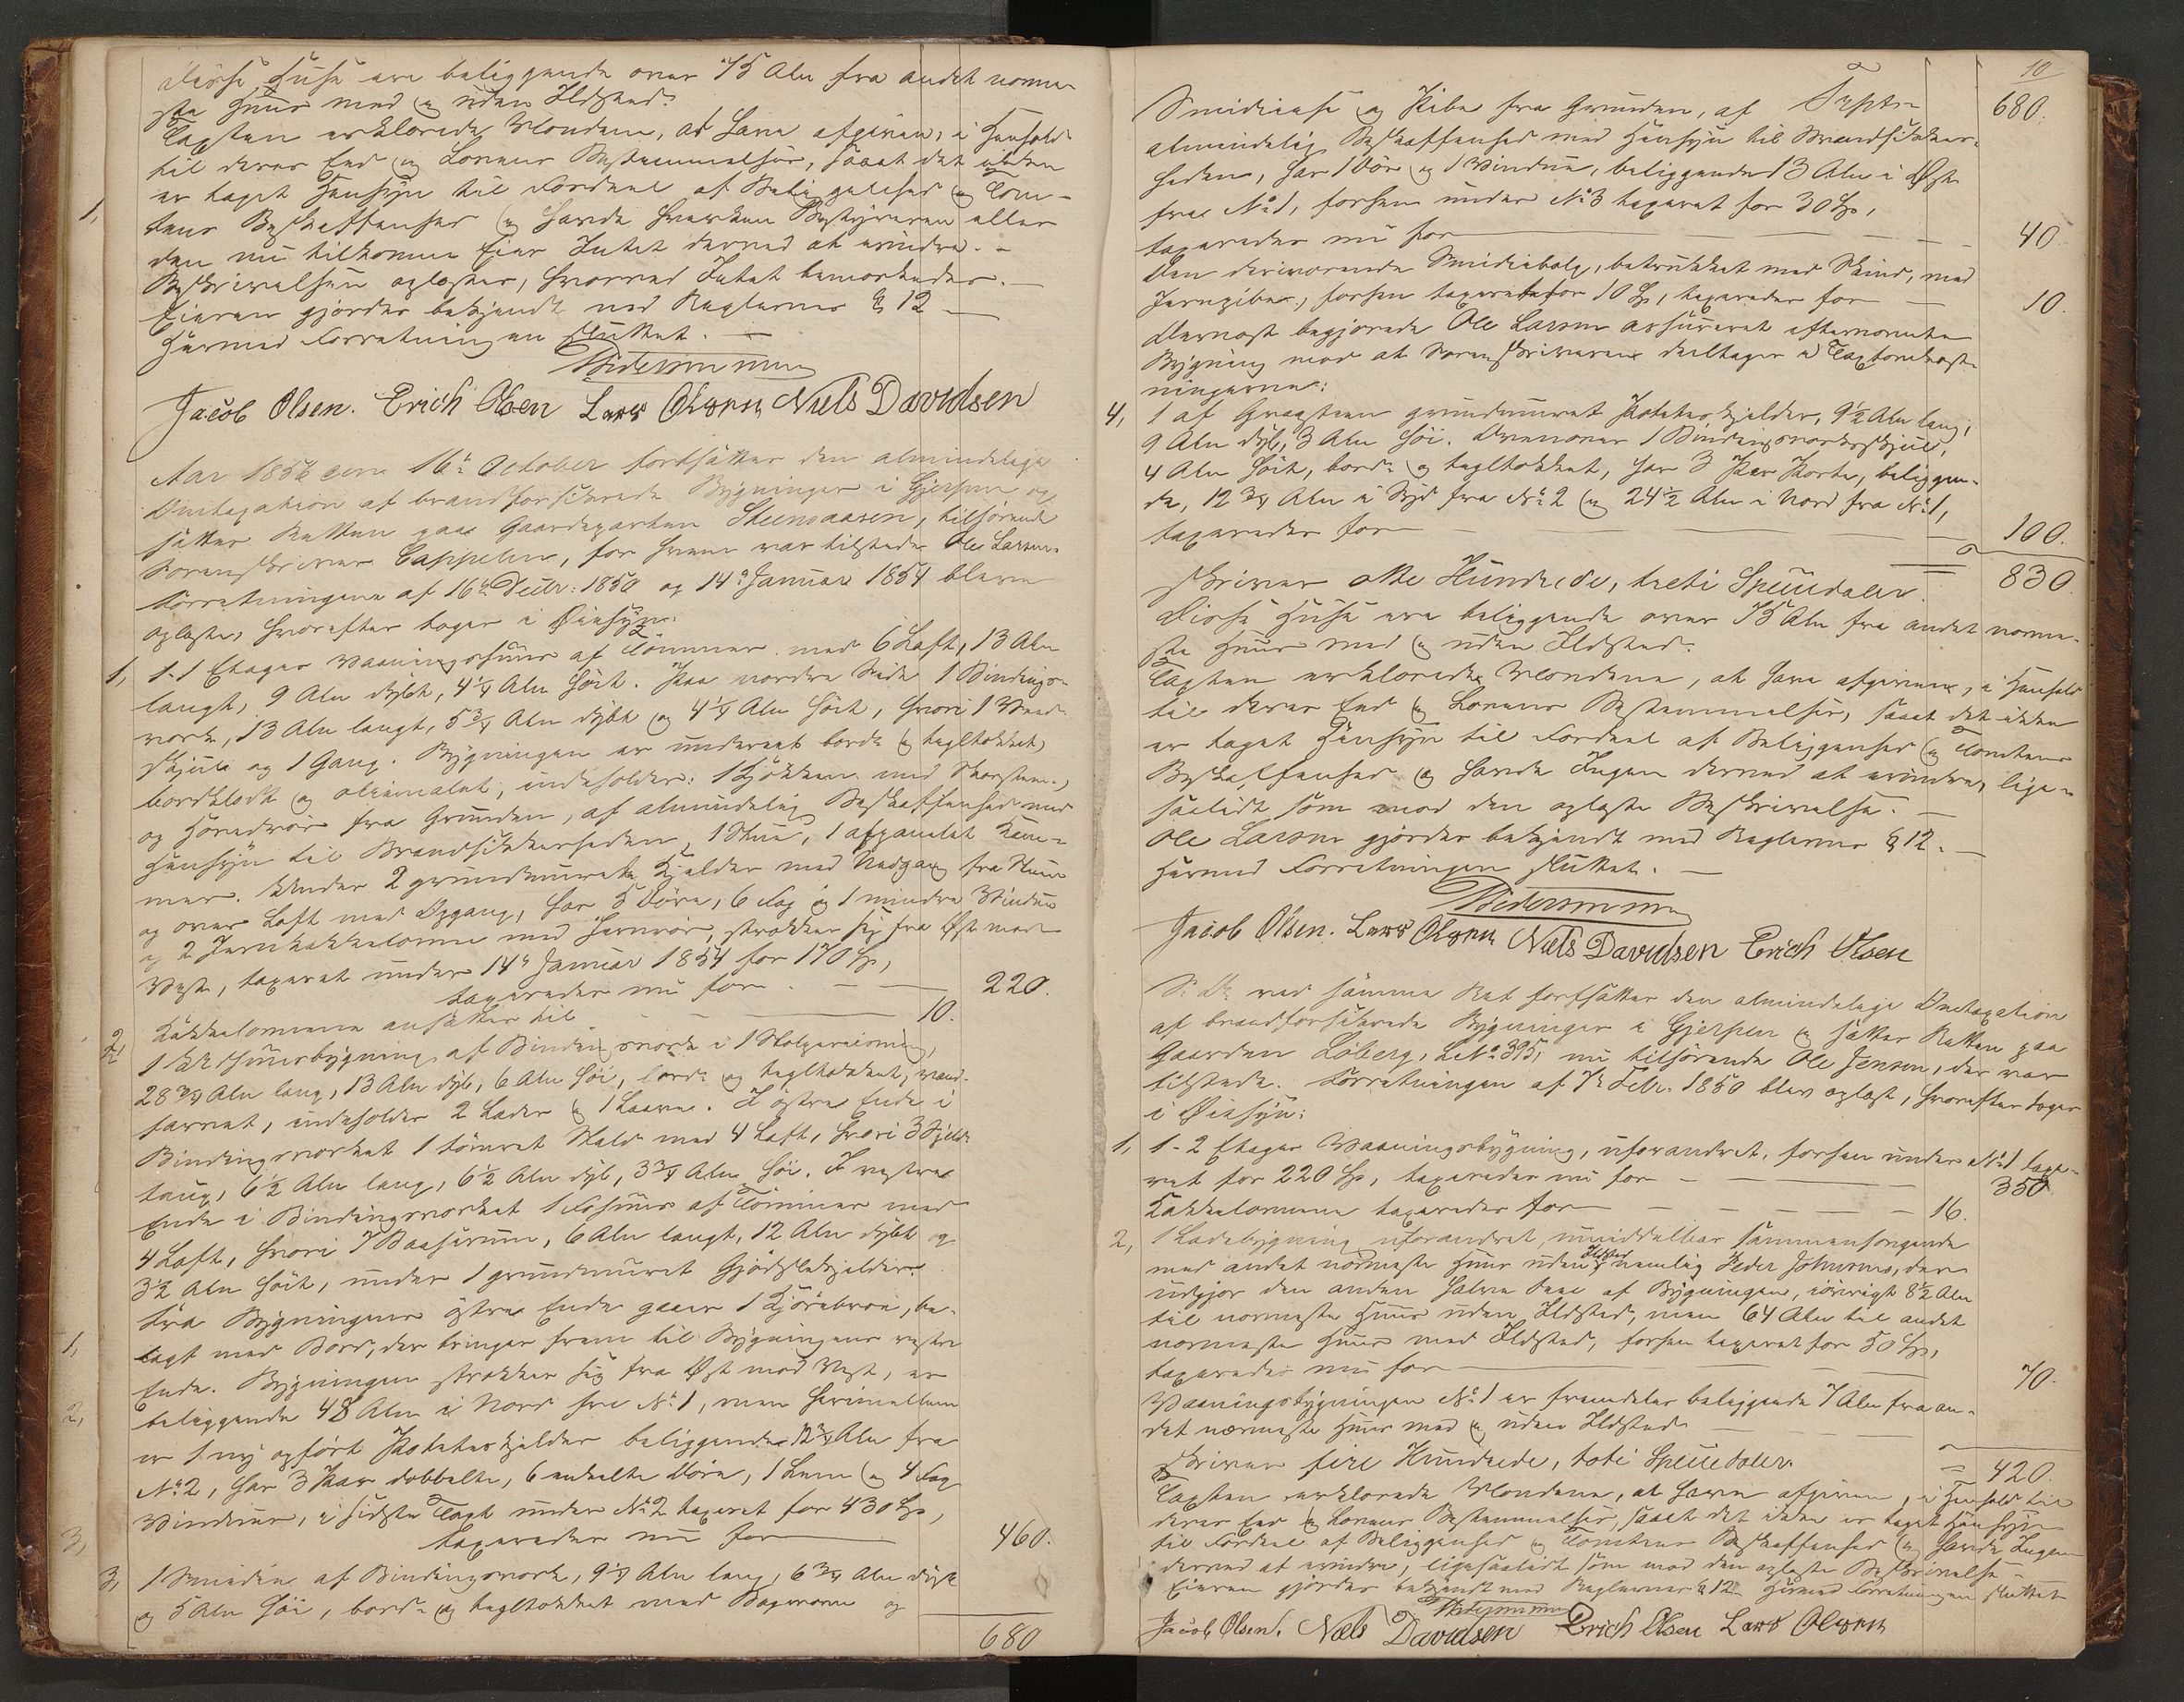 Disse Huse ere beliggende over 75 Alen fra andet nærme-
ste Huus med og uden Ildsted.
Taxten erklærede Mændene, at have afgiven, i Henhold
til deres Eed og Lovens Bestemmelser, saaat det ikke
er taget Hensyn til Fordeel af Beliggenhed og Tom-
1, tens Beskaffenhed og havde hverken Bestyreren eller
den nu tilkomne Eier Intet derved at erindre. -
Beskrivelsen oplæstes, hvorved Intet bemærkedes. -
Eieren gjordes bekjendt med Reglernes § 12 -
Hermed Forretningen sluttet. -
Jacob Olsen. Erich Olsen Lars Olsen Niels Davidsen
Aar 1856 den 16de October fortsattes den almindelige
Omtaxation af brandforsikrede Bygninger i Gjerpen og
sattes Retten paa Gaardeparten Steensaasen, tilhørende
Sorenskriver Cappelen, for hvem var tilstede Ole Larsen.
Forretningene af 16de Decbr: 1850 og 14de Januar 1854 bleve
oplæste, hvorefter toges i Øiesyn:
1, 1-1 Etages Vaaningshuus af Tømmer med 6 Laft, 13 Alen
langt, 9 Alen dybt, 4 1/4 Alen høit. Paa nordre Side 1 Bindings-
værk, 13 Alen langt, 5 3/4 Alen dybt og 4 1/4 Alen høit, hvori 1 Ved-
skjule og 1 Gang. Bygningen er undersat bord- og tegltækket,
bordklædt og oliemalet, indeholder: 1 Kjøkken med Skorsteen,
og fra Grunden, af almindelig Beskaffenhed med
Hensyn til Brandsikkerheden, 1 Stue, 1 afpanelet Kam-
mer. Under 2 grundmurede Kjelder med Nedgang fra Stuen
og over Loft med Opgang, har 5 Døre, 6 Fag og 1 mindre Vindue
og 2 Jernkakkelovne med Jernrør, strækker sig fra Øst mod
Vest, taxeret under 14de Januar 1854 for 170 Sp,
taxeredes nu for - - 220.
Kakkelovnene ansættes til - - 10.
2, 1 Udhuusbygning af Bindingsværk i 1 Stolpereisning,
28 3/4 Alen lang, 13 Alen dyb, 6 Alen høi, bord- og tegltækket, rød-
farvet, indeholder 2 Lader og 1 Laave. I østre Ende i
Bindingsværket 1 tømret Stald med 4 Laft, hvori 3 Spild-
toug, 6 1/2 Alen lang, 6 1/2 Alen dyb, 3 3/4 Alen høi. I vestre
Ende i Bindingsværket 1 Fæhuus af Tømmer med
4 Laft, hvori 7 Baaserum, 6 Alen langt, 12 Alen dybt og
3 1/2 Alen høit, under 1 grundmuret Gjødselkjelder.
Fra Bygningens østre Ende gaaer 1 Kjørebroe, be-
1, lagt med Bord, der bringer frem til Bygningens vestre
Ende. Bygningen strækker sig fra Øst mod Vest, er
2, beliggende 48 Alen i Nord fra No 1, men herimellem
er 1 ny opført Potetoskjelder beliggende 12 3/4 Alen fra
No 2, har 3 Par dobbelte, 6 enkelte Døre, 1 Lem og 4 Fag
Vinduer, i sidste Taxt under No 2 taxeret for 430 Sp,
3, taxeredes nu for 460.
3, 1 Smedie af Bindingsværk, 9 1/4 Alen lang, 6 3/4 Alen dyb
og 5 Alen høi, bord- og tegltækket med Bagerovn og
680
10
Transp.
Smedieesse og Pibe fra Grunden, af 680.
almindelig Beskaffenhed med Hensyn til Brandsikker-
heden, har 1 Dør og 1 Vindue, beliggende 13 Alen i Øst
fra No 1, forhen under No 3 taxeret for 30 Sp,
taxeredes nu for - - 40.
Den deriværende Smediebælg, betrukket med Skind, med
Jernpibe, forhen taxeret for 10 Sp, taxeredes for - 10.
Dernæst begjærede Ole Larsen assureret efternævnte
Bygning mod at Sorenskriveren deeltager i Taxtomkost-
ningerne:
4, 1 af Graasteen grundmuret Potetoskjelder, 9 1/2 Alen lang,
9 Alen dyb, 3 Alen høi. Derover 1 Bindingsværksskjul,
4 Alen høit, bord- og tegltækket, har 3 Par Porte, beliggen-
de, 12 3/4 Alen i Syd fra No 2 og 24 1/2 Alen i Nord fra No 1,
taxeredes for - - 100.
Skriver otte Hundrede, tredi Speciedaler. 830.
Disse Huse ere beliggende over 75 Alen fra andet nærme-
ste Huus med og uden Ildsted.
Taxten erklærede Mændene, at have afgiven, i Henhold
til deres Eed og Lovens Bestemmelser, saaat det ikke
er taget Hensyn til Fordeel af Beliggenhed og Tomtens
Beskaffenhed og havde Ingen derved at erindre, lige-
saalidt som mod den oplæste Beskrivelse. -
Ole Larsen gjordes bekjendt med Reglernes § 12. -
Hermed Forretningen sluttet. -
Jacob Olsen. Lars Olsen Niels Davidsen Erich Olsen
S. D. ved samme Ret fortsattes den almindelige Omtaxation
af brandforsikrede Bygninger i Gjerpen og sattes Retten paa
Gaarden Løberg, L No 395, nu tilhørende Ole Jensen, der var
tilstede. Forretningen af 7de Febr. 1850 blev oplæst, hvorefter toges
i Øiesyn:
1, 1-2 Etages Vaaningsbygning, uforandret, forhen under No 1 taxe-
ret for 220 Sp, taxeredes nu for - - 350
Kakkelovnene taxeredes for - - 16.
2, 1 Ladebygning uforandret, umiddelbar sammenhængende
med andet nærmeste Huus uden Ildsted nemlig Peder Johnsens, der
udgjør den anden halve Deel af Bygningen, iøvrigt 8 1/2 Alen
til nærmeste Huus uden Ildsted, men 64 Alen til andet
nærmeste Huus med Ildsted, forhen taxeret for 50 Sp,
taxeredes nu for 70.
Vaaningsbygningen No 1 er fremdeles beliggende 7 Alen fra an-
det nærmeste Huus med og uden Ildsted
Skriver fire Hundrede, tyve Speciedaler. 420.
Taxten erklærede Mændene, at have afgiven, i Henhold til
deres Eed og Lovens Bestemmelser, saaat det ikke er taget Hensyn
til Fordeel af Beliggenhed og Tomtens Beskaffenhed og havde Ingen
derved at erindre, ligesaalidt som mod den oplæste Beskrivelse -
Eieren gjordes bekjendt med Reglernes § 12 Hermed Forretningen sluttet
Jacob Olsen. Niels Davidsen Erich Olsen Lars Olsen